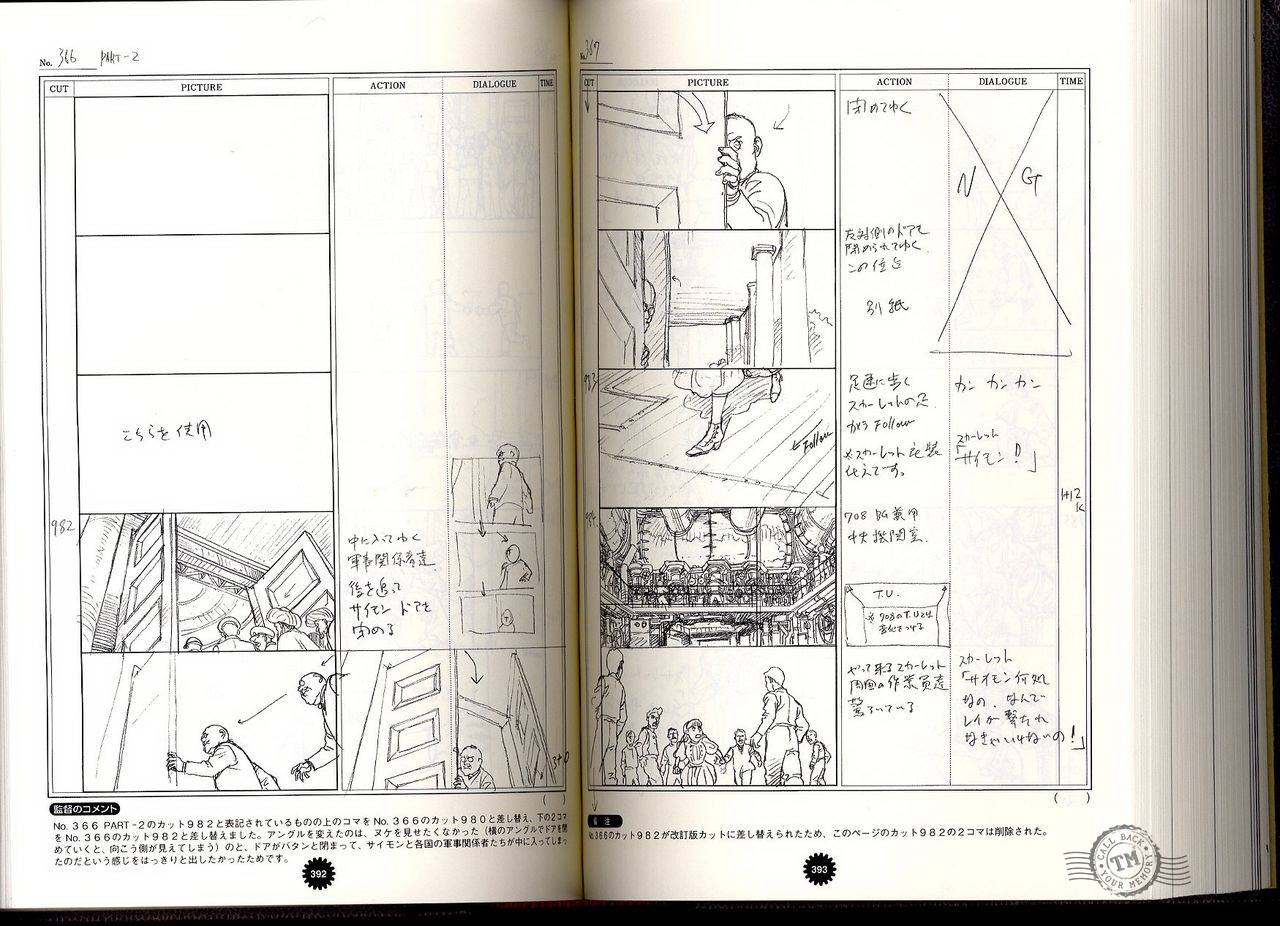 No. 366 PART-2
CUT
PICTURE
ACTION
DIALOGUE
TIME
こちらを使用
982
中に入ってゆく
軍事関係者達
後を追って
サイモン ドアを
閉める
3+0
( )
監督のコメント
No. 366 PART-2のカット982と表記されているものの上のコマをNo. 366のカット980と差し替え、下の2コマ
をNo. 366のカット982と差し替えました。アングルを変えたのは、ヌケを見せたくなかった（横のアングルでドアを閉
めていくと、向こう側が見えてしまう）のと、ドアがバタンと閉まって、サイモンと各国の軍事関係者たちが中に入ってしまっ
たのだという感じをはっきりと出したかったためです。
392
No. 367
CUT
PICTURE
ACTION
DIALOGUE
TIME
閉めてゆく
N G
反対側のドアも
閉められてゆく
この位置
別紙
983
足速に歩く
スカーレットの足
カメラ Follow
※スカーレット 衣装
替えてます。
カン カン カン
スカーレット
「サイモン!」
Follow
1+12
K
984
708 BG兼用
中央機関室
T.U.
※ 708のT.Uとは
変化をつける
やって来るスカーレット
周囲の作業員達
驚いている
スカーレット
「サイモン何処
なの、なんで
レイが撃たれ
なきゃいけないの!」
( )
備 注
No.366のカット982が改訂版カットに差し替えられたため、このページのカット982の2コマは削除された。
393
CALL BACK
TM
YOUR MEMORY